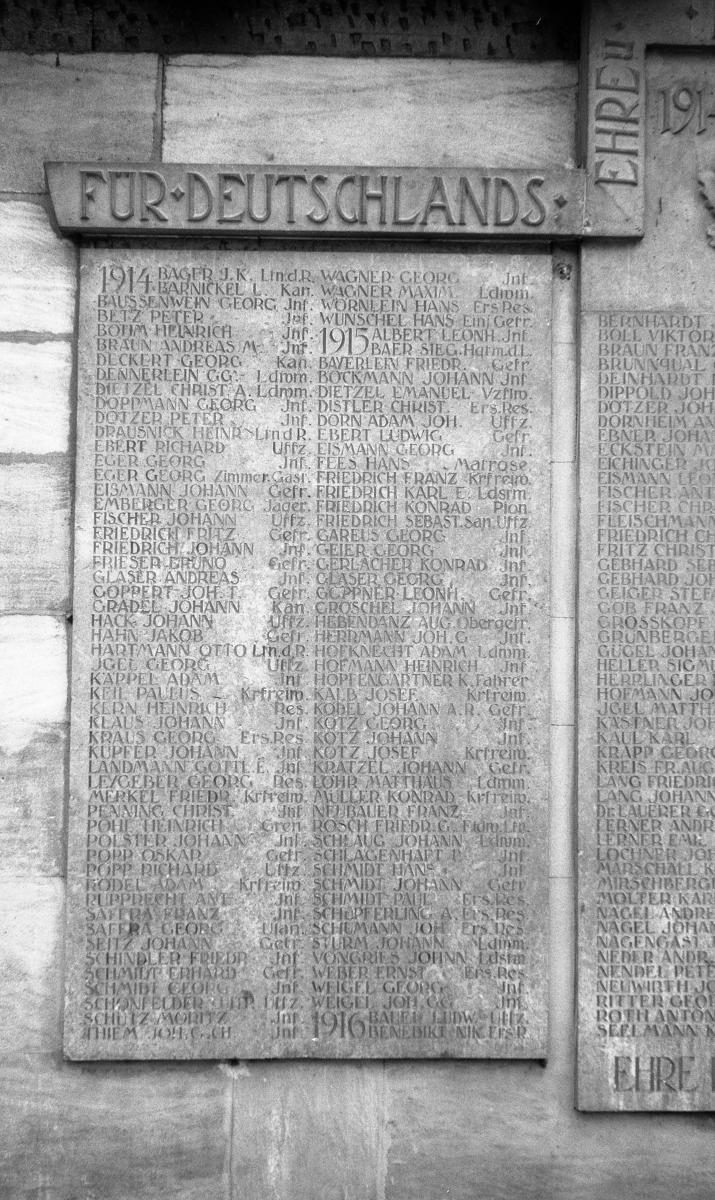 FÜR·DEUTSCHLANDS·
EHRE
1914 BAGER J.K. Lin.d.R.
BARNICKEL L. Kan.
BAUSSENWEIN GEORG Jnf.
BETZ PETER Jnf.
BÖHM HEINRICH Jnf.
BRAUN ANDREAS M. Jnf.
DECKERT GEORG Kan.
DENNERLEIN GG. Ldmm.
DIETZEL CHRIST. A. Ldmm.
DOPPMANN GEORG Jnf.
DOTZER PETER Jnf.
DRAUSNICK HEINR. Lin.d.R.
EBERT RICHARD Uffz.
EGER GEORG Jnf.
EGER GEORG Zimmer.Gast.
EISMANN JOHANN Gefr.
EMBERGER GEORG Jäger.
FISCHER JOHANN Uffz.
FRIEDRICH FRITZ Gefr.
FRIEDRICH JOHANN Jnf.
FRIESER BRUNO Gefr.
GLASER ANDREAS Jnf.
GOPPERT JOH. T. Gefr.
GRADEL JOHANN Kan.
HACK JOHANN Uffz.
HAHN JAKOB Gefr.
HARTMANN OTTO Lin.d.R.
JGEL GEORG Uffz.
KÄPPEL ADAM Jnf.
KEIL PAULUS Krtfreiw.
KERN HEINRICH Res.
KLAUS JOHANN Jnf.
KRAUS GEORG Ers.Res.
KÜPFER JOHANN Jnf.
LANDMANN GOTTL. E. Jnf.
LEZGEBER GEORG Res.
MERKEL FRIEDR. Krtfreiw.
PENNING CHRIST. Jnf.
PÖHE HEINRICH Gren.
POLSTER JOHANN Jnf.
POPP OSKAR Gefr.
POPP RICHARD Uffz.
RÖDEL ADAM Krtfreiw.
RUPPRECHT ANT. Jnf.
SAFFRA FRANZ Jnf.
SAFFRA GEORG Ulan.
SEITZ JOHANN Gefr.
SCHINDLER FRIEDR. Jnf.
SCHMIDT ERHARD Gefr.
SCHMIDT GEORG Jnf.
SCHÖNFELDER Uffz.
SCHÜTZ MORITZ Jnf.
THIEM JOH. G. CH. Jnf.
WAGNER GEORG Jnf.
WAGNER MAXIM. Ldmm.
WÖRNLEIN HANS Ers.Res.
WÜNSCHEL HANS Einj.Gefr.
1915 ALBERT LEONH. Jnf.
BAER SIEG. Hptm.d.L.
BAYERLEIN FRIEDR. Gefr.
BÖCKMANN JOHANN Jnf.
DIETZEL EMANUEL Vzflw.
DISTLER CHRIST. Ers.Res.
DORN ADAM JOH. Uffz.
EBERT LUDWIG Gefr.
EISMANN GEORG Jnf.
FEES HANS Matrose.
FRIEDRICH FRANZ Krtfreiw.
FRIEDRICH KARL E. Ldstm.
FRIEDRICH KONRAD Pion.
FRIEDRICH SEBAST. San.Uffz.
GAREUS GEORG Jnf.
GEIER GEORG Jnf.
GERLACHER KONRAD Jnf.
GLASER GEORG Jnf.
GÖPPNER LEONH. Gefr.
GRÖSCHEL JOHANN Jnf.
HEBENDANZ AUG. Obergefr.
HERRMANN JOH. G. Jnf.
HOFKNECHT ADAM Ldmm.
HOFMANN HEINRICH Jnf.
HOPFENGÄRTNER K. Fahrer
KALB JOSEF Krtfreiw.
KOBEL JOHANN A. R. Gefr.
KOTZ GEORG Jnf.
KOTZ JOHANN Jnf.
KOTZ JOSEF Krtfreiw.
KRATZEL JOHANN Gefr.
LÖHR MATTHÄUS Ldmm.
MÜLLER KONRAD Krtfreiw.
NEUBAUER FRANZ Jnf.
RÖSCH FRIEDR. G.
SCHLAUG JOHANN Ldmm.
SCHLAGENHAFT P. Jnf.
SCHMIDT HANS Jnf.
SCHMIDT JOHANN Gefr.
SCHMIDT PAUL Ers.Res.
SCHÖPFERLING A. Ers.Res.
SCHUMANN JOH. Ers.Res.
STURM JOHANN Ldmm.
VONGRIES JOHNN Ldstm.
WEBER ERNST Ers.Res.
WEIGEL GEORG Jnf.
WEIGEL JOH. GG. Jnf.
1916 BAUER LUDW. Uffz.
BENEDIKT NIK. Ers.R.
BERNHARDT
BÖLL VIKTOR
BRAUN FRANZ
BRUNNQUAL
DEINHARDT
DIPPOLD JOH
DOTZER JOH
DORNHEIM AN
EBNER JOHA
ECKSTEIN M
EICHINGER JO
EISMANN LEO
FISCHER ANT
FISCHER CHR
FLEISCHMANN
FRIEDRICH CH
FRITZ CHRIST
GEBHARD SEB
GEBHARD JOH
GEIGER STEFA
GÖB FRANZ
GROSSKOPF
GRÜNBERGER
GÜGEL JOHAN
HELLER SIGMU
HERRLINGER
HOFMANN JO
JGEL MATTH
KÄSTNER JOH
KAUL KARL
KRAPP GEORG
KREIS FR. AUG
LANG FRIEDRI
LANG JOHANN
Dr. LAUERER GG
LERNER ANDR
LERNER EMIL
LOCHNER JOH
MARSCHALL K
MIRSCHBERGE
MOLTER KAR
NAGEL ANDRE
NAGEL JOHAN
NAGENGAST J
NEDER ANDR.
NENDEL PETE
NEUWIRTH JO
RITTER GEOR
ROTH ANTON
SEELMANN K
EHRE